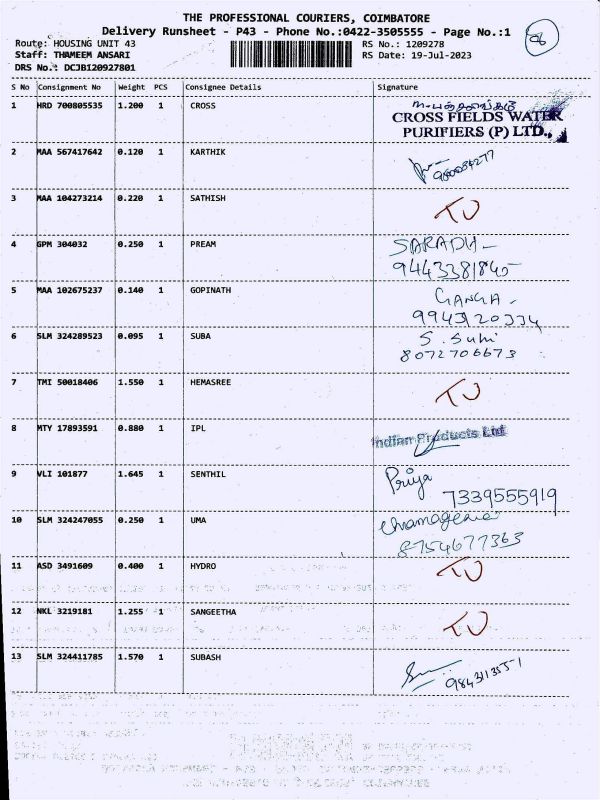 THE PROFESSIONAL COURIERS, COIMBATORE
Delivery Runsheet - P43 - Phone No.:0422-3505555 - Page No.:1
Route: HOUSING UNIT 43 RS No.: 1209278
Staff: THAMEEM ANSARI RS Date: 19-Jul-2023
DRS No.: DCJB120927801
S No Consignment No Weight PCS Consignee Details Signature
1 HRD 700805535 1.200 1 CROSS
CROSS FIELDS WATER
PURIFIERS (P) LTD.,
2 MAA 567417642 0.120 1 KARTHIK
3 MAA 104273214 0.220 1 SATHISH
4 GPM 304032 0.250 1 PREAM SARADH -
9443381845
5 MAA 102675237 0.140 1 GOPINATH GANGA -
9943120334
6 SLM 324289523 0.095 1 SUBA S. Suhi
8072706673
7 TMI 50018406 1.550 1 HEMASREE
8 MTY 17893591 0.880 1 IPL
Indian Products Ltd
9 VLI 101877 1.645 1 SENTHIL Priya
7339555919
10 SLM 324247055 0.250 1 UMA
8754677363
11 ASD 3491609 0.400 1 HYDRO
12 NKL 3219181 1.255 1 SANGEETHA
13 SLM 324411785 1.570 1 SUBASH